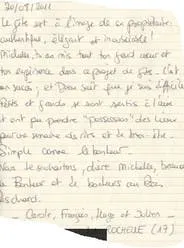 20/09/2011
Le gîte est à l'image de sa propriétaire
authentique, élégant et inoubliable !
Michelle, tu as mis tout ton cœur et
ton expérience dans ce projet de gîte. C'est
un succès ; et Dieu sait que je suis difficile
Petits et grands se sont sentis à l'aise
et ont pu prendre "possession" des lieux
pour une semaine de rires et de bien-être.
Simple comme le bonheur.
Nous te souhaitons, chère Michelle, beaucoup
de bonheur et de bonheurs au Bon
- Carole, François, Hugo et Julien -
ROCHELLE (17)